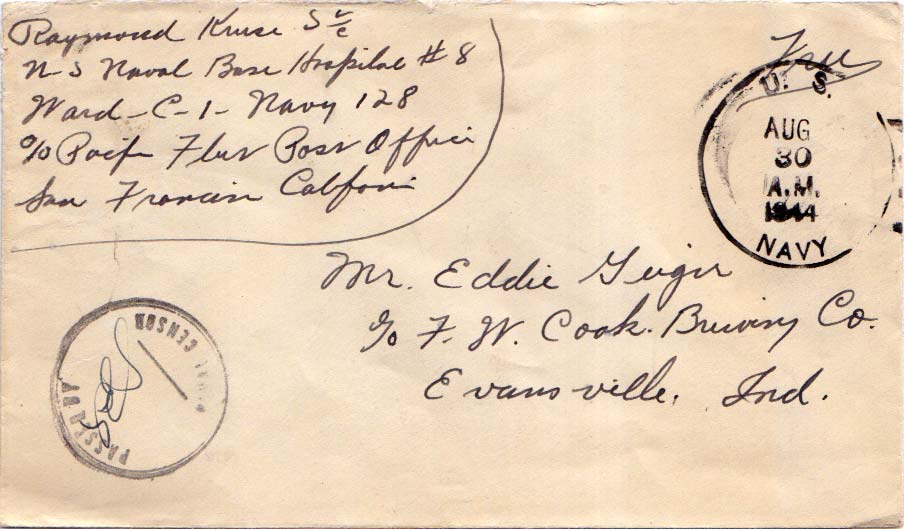 Raymond Kruse S 2/c
U-S Naval Base Hospital # 8
Ward-C-1- Navy 128
c/o Pacif Fleet Post Office
San Francisco California
Free
U. S.
AUG
30
A.M.
1944
NAVY
Mr. Eddie Geiger
c/o F. W. Cook. Brewing Co.
Evansville, Ind.
PASSED BY
NAVAL CENSOR